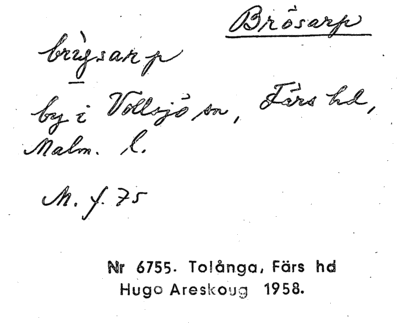 Brösarp
brìgsarp
by i Vollsjö sn, Färs hd,
Malm. l.
M. f. 75
Nr 6755. Tolånga, Färs hd
Hugo Areskoug 1958.